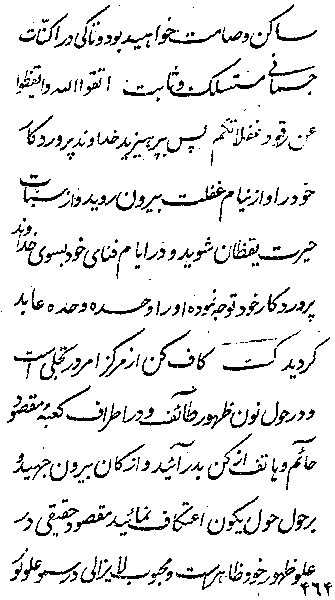 ساکن و صامت خواهید بود و تا کی در اکنات
جسمانی متسلک و ثابت اتقوا الله و ایقظوا
عن رقود غفلاتکم پس بپرهیزید خداوند پروردکار
خود را و از نیام غفلت بیرون روید و از سبات
حیرت یقظان شوید و در ایام فنای خود بسوی خداوند
پروردکار خود توجه نموده او را وحده وحده عابد
کردید کت کاف کن از مرکز امر ور تجلی است
و در حول نون ظهور طائف و در اطراف کعبهٔ مقصود
حائم و هاتف از کن بدر آئید و از کان بیرون جهید و
بر حول حول یکون اعتکاف نمائید مقصود حقیقی در
علو ظهور خود ظاهرست و محبوب لایزالی در سمو علو
۴۶۴